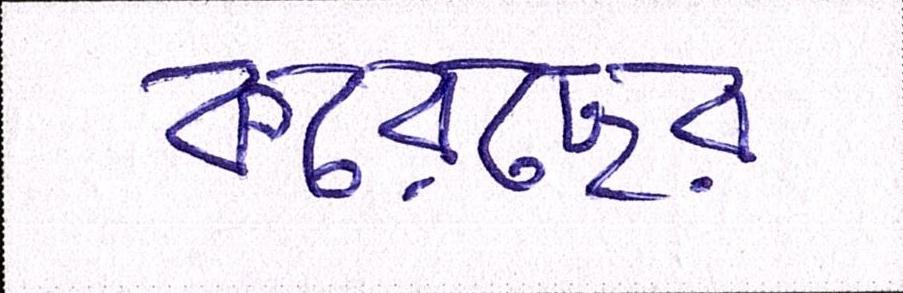 করেছের